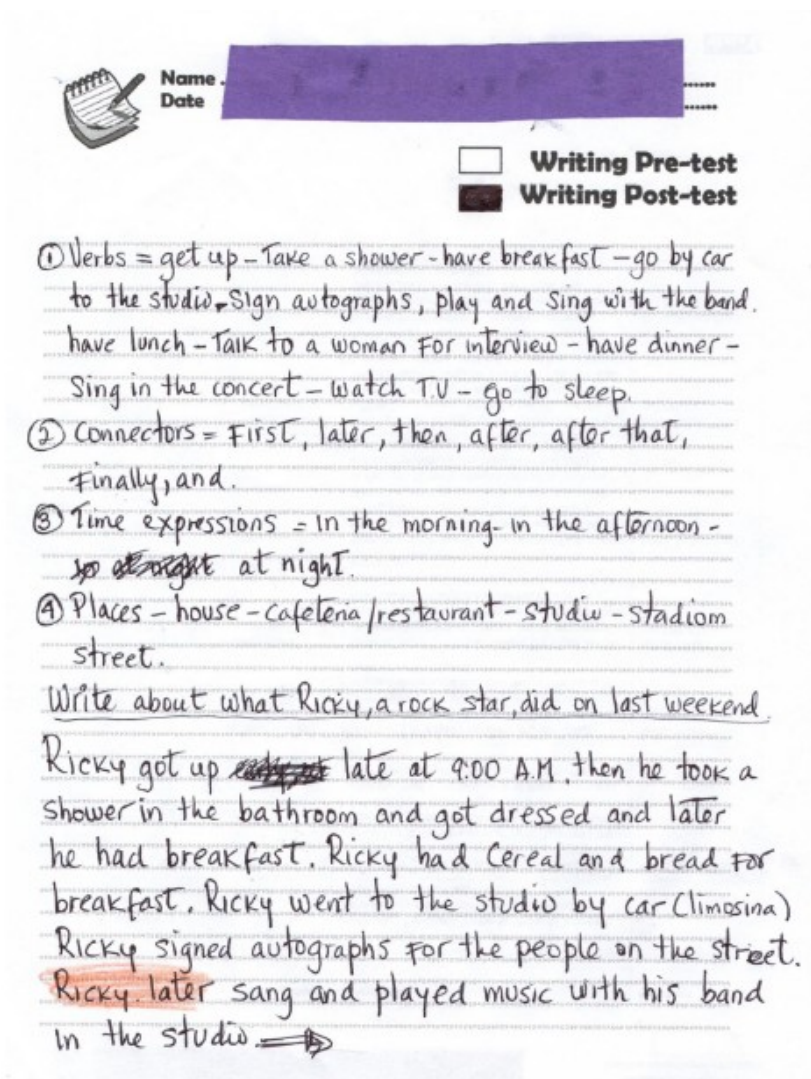 Name .
Date
Writing Pre-test
Writing Post-test
① Verbs = get up - Take a shower - have breakfast - go by car
to the studio. Sign autographs, play and sing with the band.
have lunch - Talk to a woman For interview - have dinner -
Sing in the concert - watch T.V - go to sleep.
② Connectors = First, later, then, after, after that,
Finally, and.
③ Time expressions = in the morning - in the afternoon -
at night.
④ Places - house - cafeteria/restaurant - studio - stadiom
street.
Write about what Ricky, a rock star, did on last weekend.
Ricky got up late at 9:00 A.M. then he took a
shower in the bathroom and got dressed and later
he had breakfast. Ricky had Cereal and bread For
breakfast. Ricky went to the studio by car (limosina)
Ricky signed autographs For the people on the street.
Ricky later sang and played music with his band
in the studio.